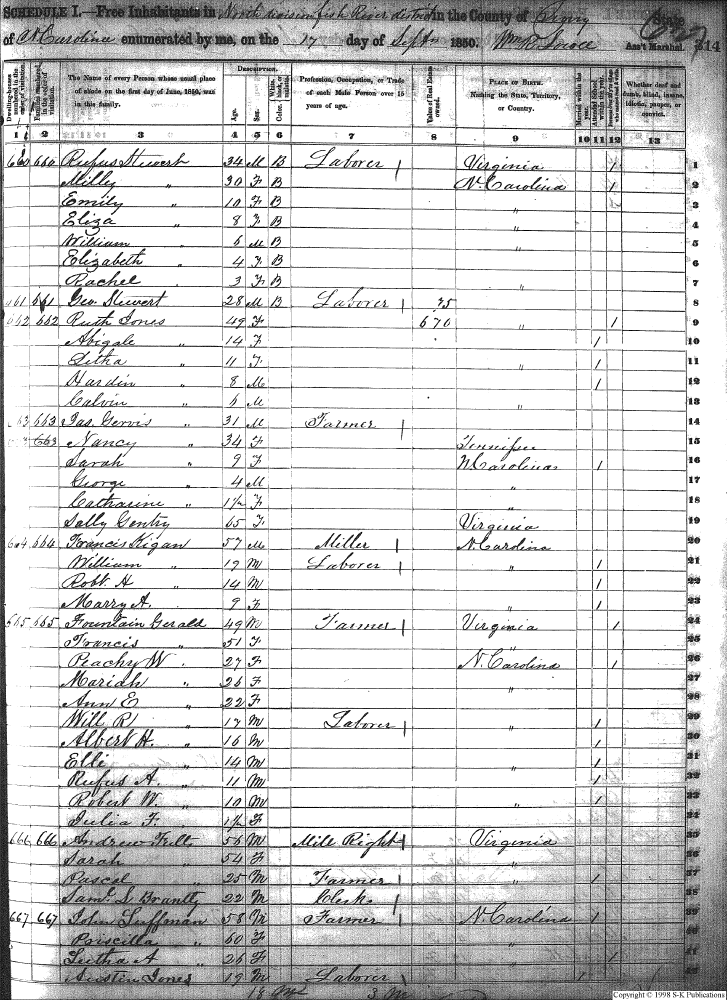 SCHEDULE I.—Free Inhabitants in North division fish River district in the County of State
of N Carolina enumerated by me, on the 17 day of Sept 1850. Ass't Marshal. 314
Dwelling-houses numbered in the order of visitation.
Families numbered in the order of visitation.
The Name of every Person whose usual place of abode on the first day of June, 1850, was in this family.
DESCRIPTION.
Age.
Sex.
Color.
Profession, Occupation, or Trade of each Male Person over 15 years of age.
Value of Real Estate owned.
PLACE OF BIRTH. Naming the State, Territory, or Country.
Married within the year.
Whether deaf and dumb, blind, insane, idiotic, pauper, or convict.
1 2 3 4 5 6 7 8 9 10 11 12 13
660 660 Rufus Stewert 34 M B Laborer / Virginia / 1
Milly " 30 F B N. Carolina / 2
Emily " 10 F B " 3
Eliza " 8 F B " 4
William 6 M B " 5
Elizabeth " 4 F B 6
Rachel 3 F B " 7
661 661 Geo Stewert 28 M B Laborer / 75 8
662 662 Ruth Jones 49 F 670 " / 9
Abigale " 14 F / 10
Litha " 11 F " / 11
Hardin " 8 M / 12
Calvin " 6 M " 13
663 663 Jas. Gervis " 31 M Farmer / 14
663 Nancy " 34 F 15
Sarah " 9 F N Carolina / 16
George " 4 M " 17
Catharine " 1½ F " 18
Sally Gentry 65 F Virginia 19
664 664 Francis Kigan 57 M Miller / N. Carolina 20
William " 17 M Laborer / " / 21
Robt. H " 14 M / 22
Marry A. 9 F " / 23
665 665 Fountain Gerald 49 M Farmer / Virginia / 24
Francis " 51 F " 25
Peachy W 27 F N. Carolina / 26
Mariah " 26 F " 27
Ann E " 22 F 28
Will R " 17 M Laborer / " / 29
Albert H. " 16 M / 30
Elli " 14 M " / 31
Rufus A. " 11 M / 32
Robert W. " 10 M " / 33
Julia F. " 1½ F 34
666 666 Andrew Fults 56 M Mill Right / Virginia 35
Sarah " 54 F " 36
Pascal " 25 M Farmer / " / 37
Saml. S Brantly 22 M Clerk / 38
667 667 John Luffman 58 M Farmer / N. Carolina / 39
Priscilla " 60 F 40
Litha A " 26 F " / 41
Austin Jones 19 M Laborer / / 42
Copyright © 1998 S-K Publications